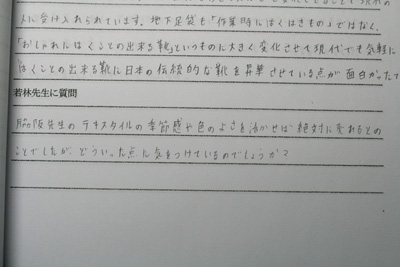 人に受け入れられています。地下足袋も「作業時にはくはきもの」ではなく、
「おしゃれにはくことの出来る靴」というものに大きく変化させて現代でも気軽に
はくことの出来る靴に日本の伝統的な靴を昇華させている点が面白かったで
若林先生に質問
脇阪先生のテキスタイルの季節感や色のよさを活かせば絶対に売れるとの
ことでしたが、どういった点に気をつけているのでしょうか?